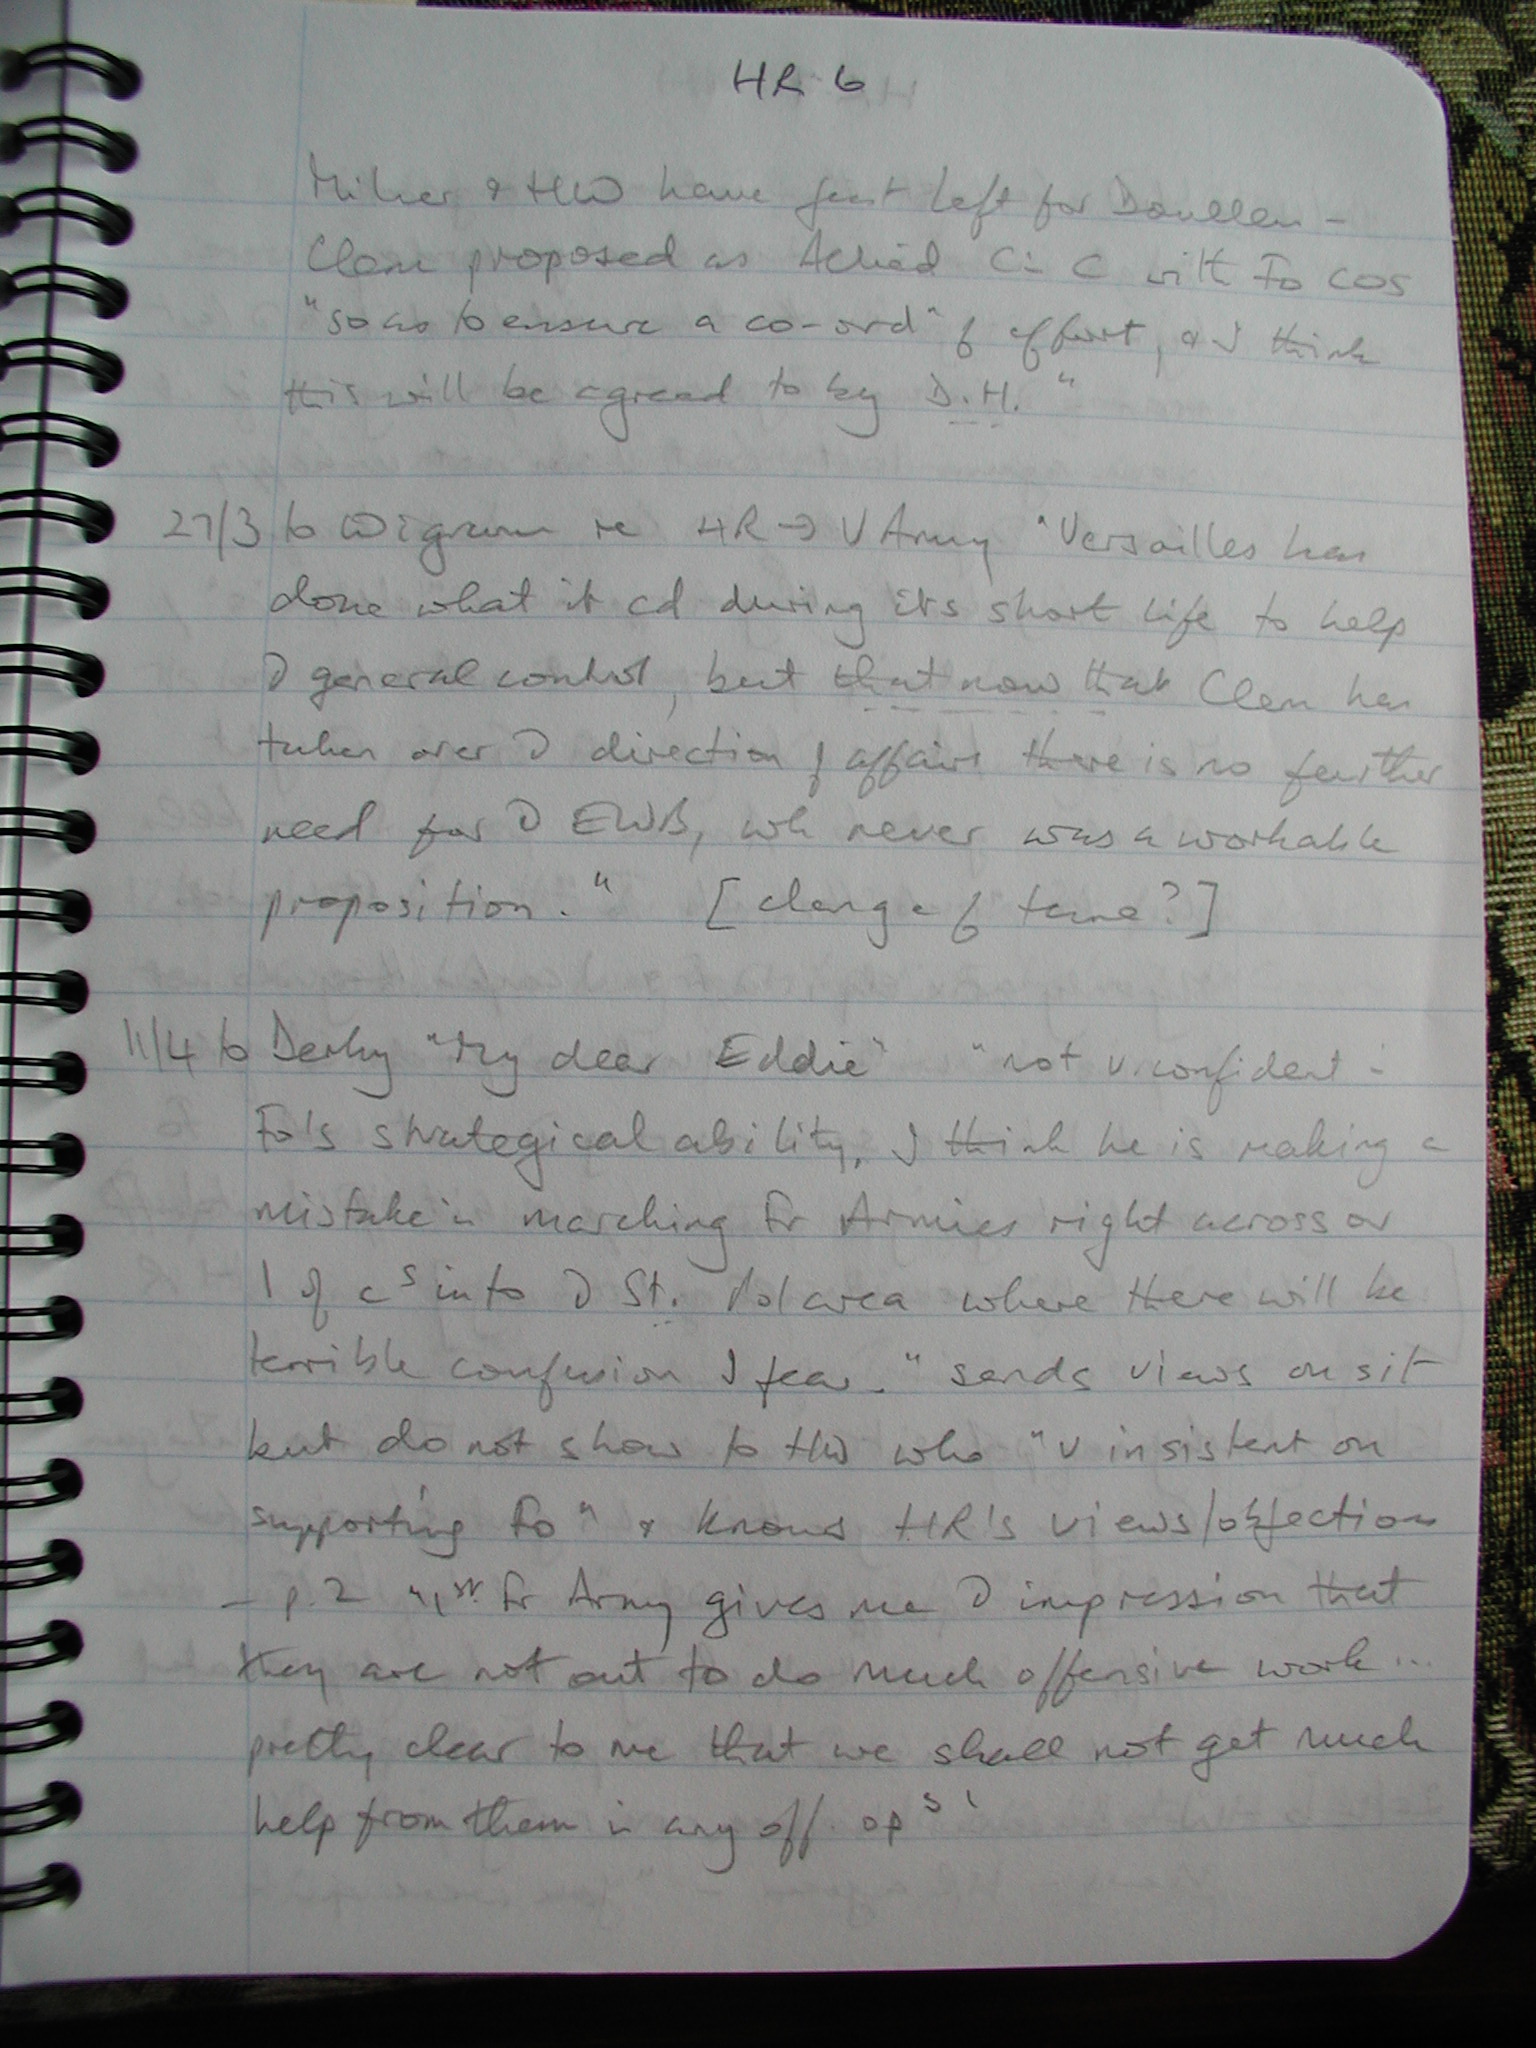 HR 6
Milner & HW have just left for Doullen -
Clem proposed as Allied C-C with Fo COS
"so as to ensure a co-ordⁿ of effort, & I think
this will be agreed to by D.H."
27/3 to Wigram re HR → V Army "Versailles has
done what it cd during its short life to help
D general control, but that now that Clem has
taken over D direction of affairs there is no further
need for D EWB, wh never was a workable
proposition." [change of tune?]
11/4 to Derby "My dear Eddie" "not v. confident in
Fo's strategical ability, I think he is making a
mistake in marching Fr Armies right across our
l of cˢ into D St. Pol area where there will be
terrible confusion I fear." sends views on sit
but do not show to HW who "v insistent on
supporting Fo" & knows HR's views/objections
- p.2 "1st Fr Army gives me D impression that
they are not out to do much offensive work ...
pretty clear to me that we shall not get much
help from them in any off. opˢ'